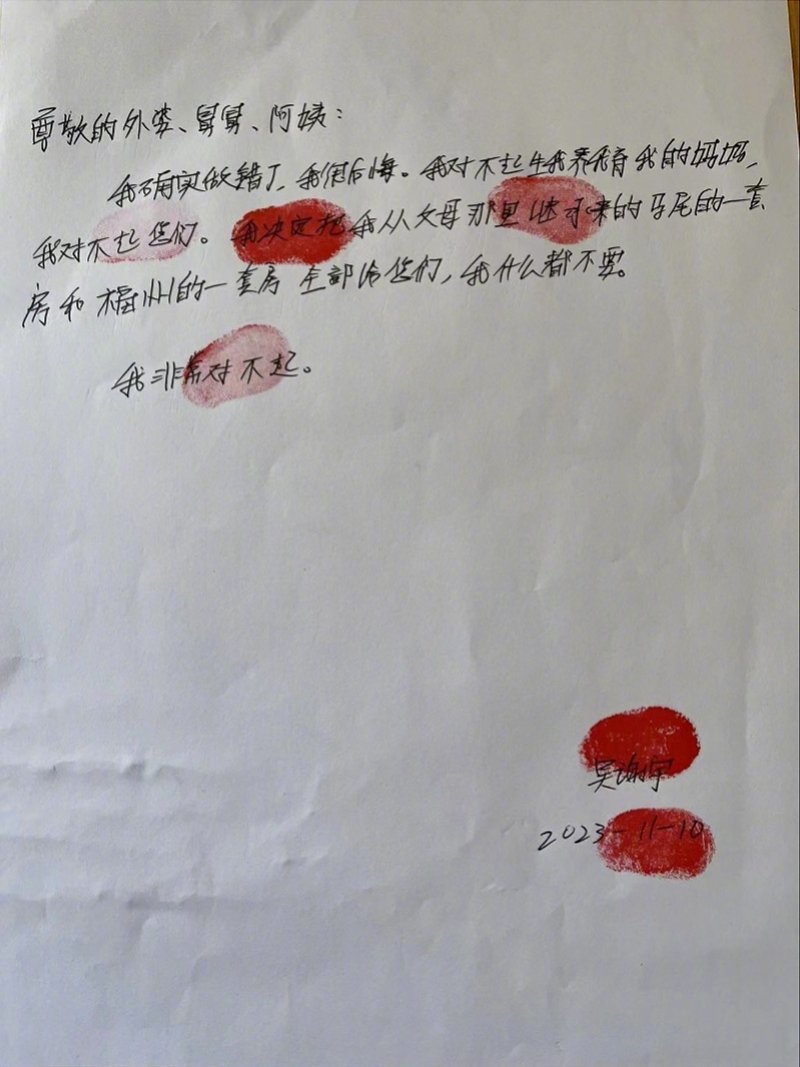 尊敬的外婆、舅舅、阿姨：
我确实做错了，我很后悔。我对不起生我养我育我的妈妈，
我对不起您们。我决定把我从父母那里继承来的马尾的一套
房和福州的一套房全部给您们，我什么都不要。
我非常对不起。
吴谢宇
2023-11-10